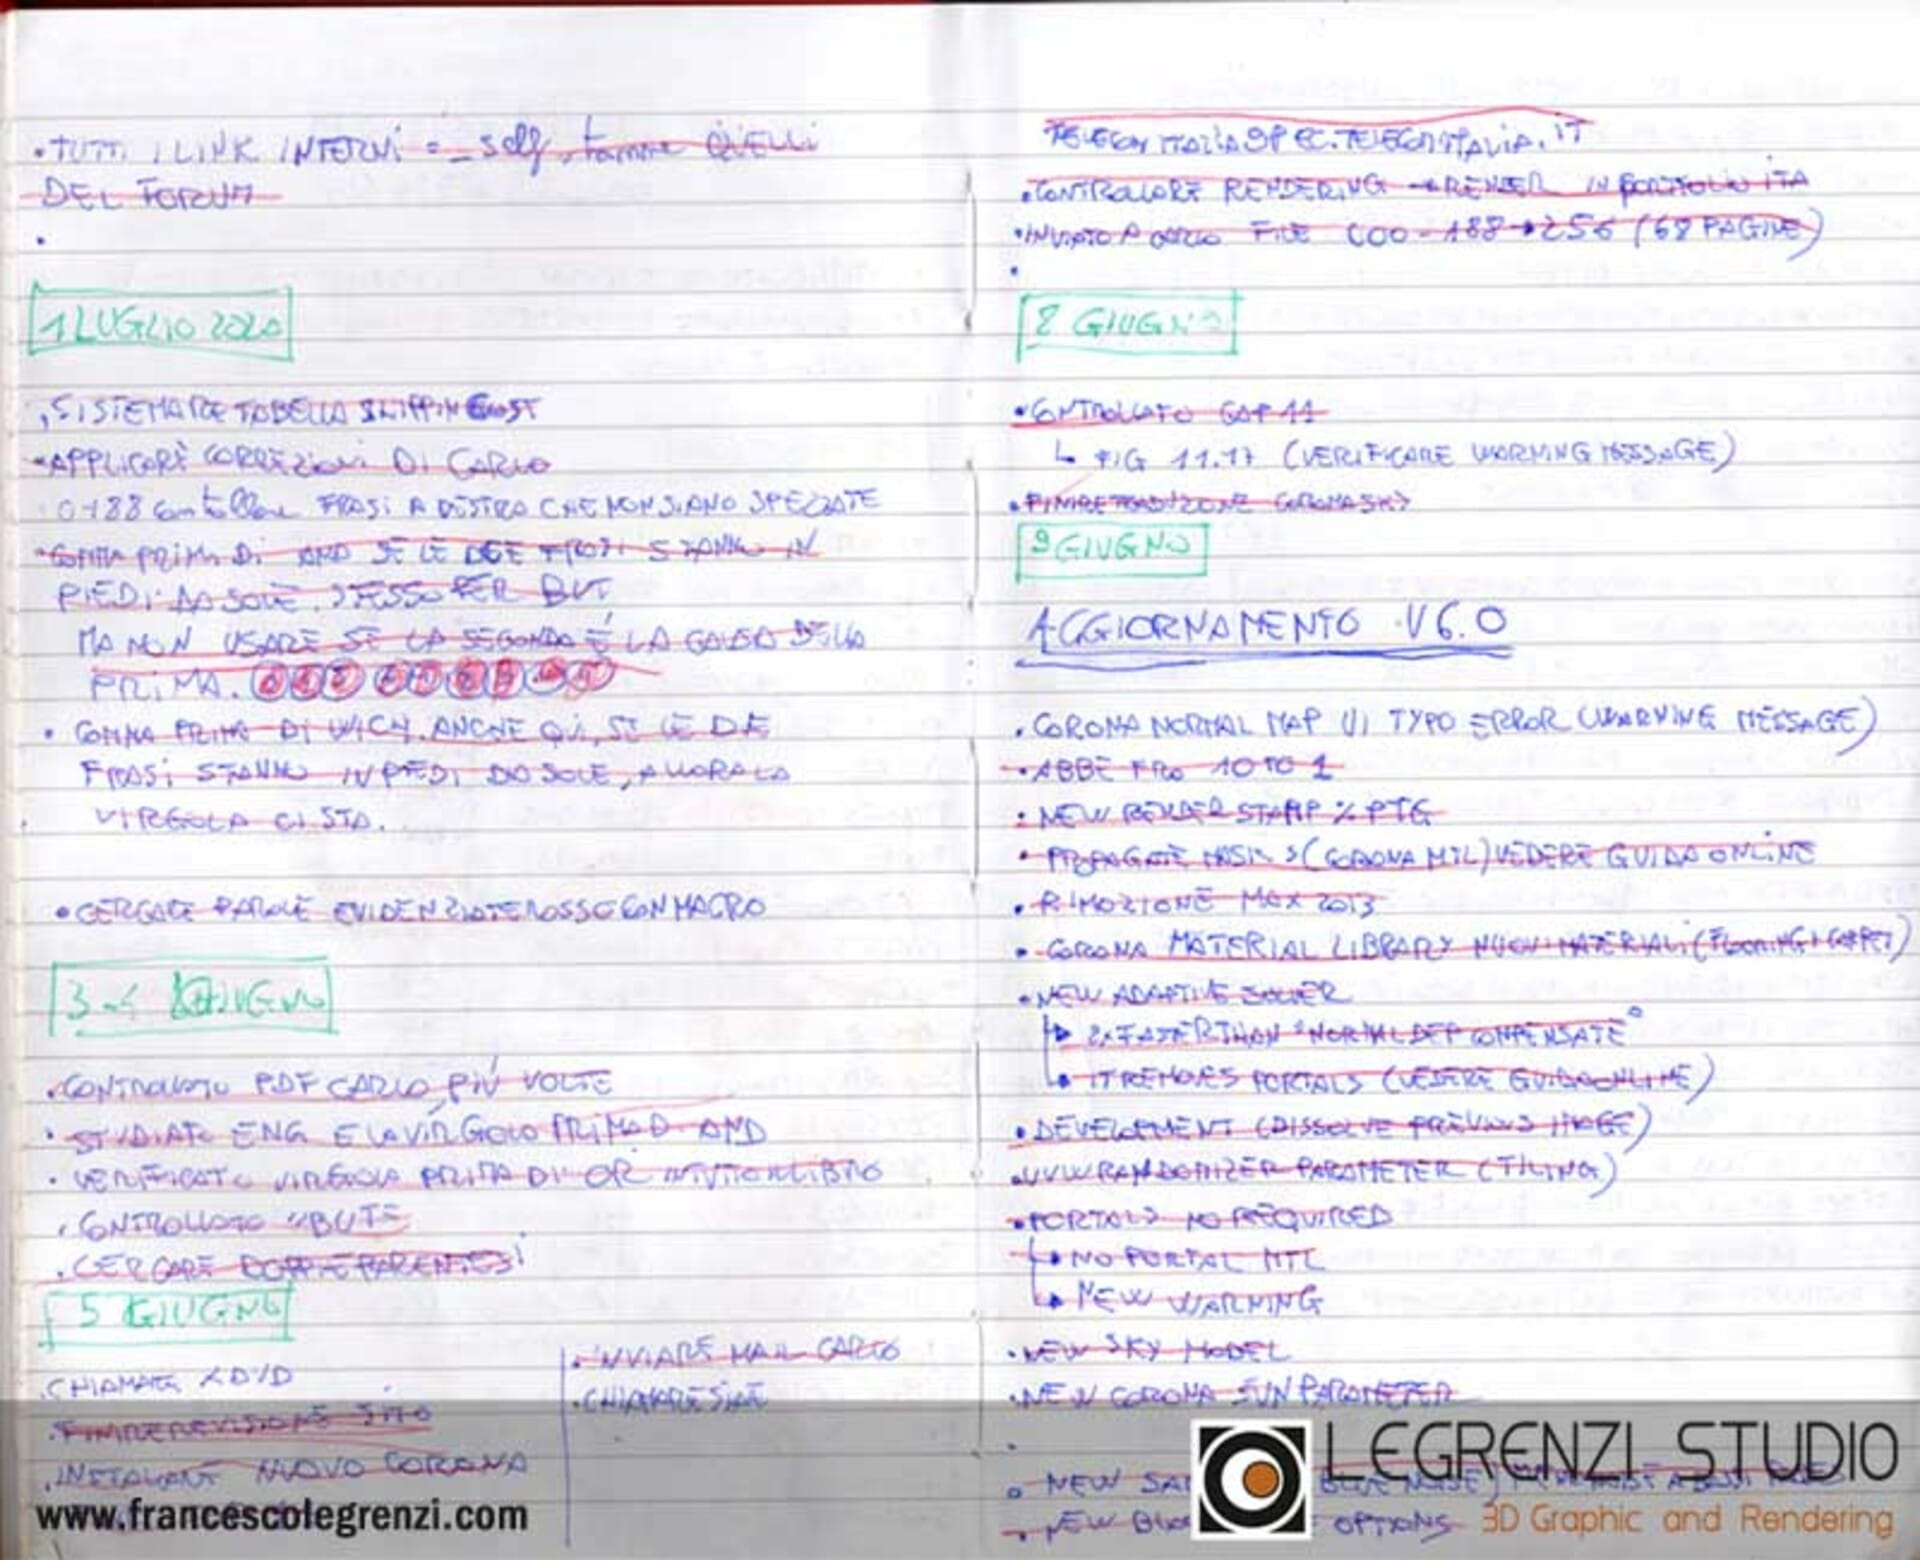 • TUTTI I LINK INTERNI = _self, tranne QUELLI
DEL FORUM
1 LUGLIO 2020
• SISTEMARE TABELLA SHIPPING COST
• APPLICARE CORREZIONI DI CARLO
0-188 controllare FRASI A DESTRA CHE NON SIANO SPEZZATE
• COMMA PRIMA DI AND SE LE DUE FRASI STANNO IN
PIEDI DA SOLE. STESSO PER BUT
MA NON USARE SE LA SECONDA È LA DELLA
PRIMA.
• COMMA PRIMA DI WICH. ANCHE QUI, SE LE DUE
FRASI STANNO IN PIEDI DA SOLE, ALLORA LA
VIRGOLA CI STA.
• CERCARE PAROLE EVIDENZIATE ROSSO CON MACRO
3-4 GIUGNO
• CONTROLLATO PDF CARLO PIÙ VOLTE
• STUDIATO ENG E LA VIRGOLA PRIMA DI AND
• VERIFICATO VIRGOLA PRIMA DI OR IN TUTTO IL LIBRO
• CONTROLLATO "BUT"
• CERCARE DOPPIE PARENTESI
5 GIUGNO
• CHIAMARE
• FINIRE REVISIONE SITO
• INSTALLARE NUOVO CORONA
• INVIARE MAIL CARLO
• CHIAMARE SIAE
www.francescolegrenzi.com
TELECOMITALIA@PEC.TELECOMITALIA.IT
• CONTROLLARE RENDERING → RENDER IN PORTFOLIO ITA
• INVIATO A CARLO FILE 000-188 → 256 (68 PAGINE)
8 GIUGNO
• CONTROLLATO CAP 11
↳ FIG 11.17 (VERIFICARE WARNING MESSAGE)
• FINIRE TRADUZIONE CORONA SKY
9 GIUGNO
AGGIORNAMENTO V6.0
• CORONA NORMAL MAP UI TYPO ERROR (WARNING MESSAGE)
• ABBE FRO 10 TO 1
• NEW RENDER STAMP % PTG
• PROPAGATE MASKS (CORONA MTL) VEDERE GUIDA ONLINE
• RIMOZIONE MAX 2013
• CORONA MATERIAL LIBRARY NUOVI MATERIALI (FLOORING, CARPET)
• NEW ADAPTIVE SOLVER
2x FASTER THAN "NORMAL DEP COMPENSATE"
IT REMOVES PORTALS (VEDERE GUIDA ONLINE)
• DEVELOPEMENT (DISSOLVE PREVIOUS IMAGE)
• UVW RANDOMIZER PARAMETER (TILING)
• PORTALS NO REQUIRED
NO PORTAL MTL
NEW WARNING
• NEW SKY MODEL
• NEW CORONA SUN PARAMETER
• NEW BLUE NOISE)
• NEW OPTIONS
LEGRENZI STUDIO
3D Graphic and Rendering